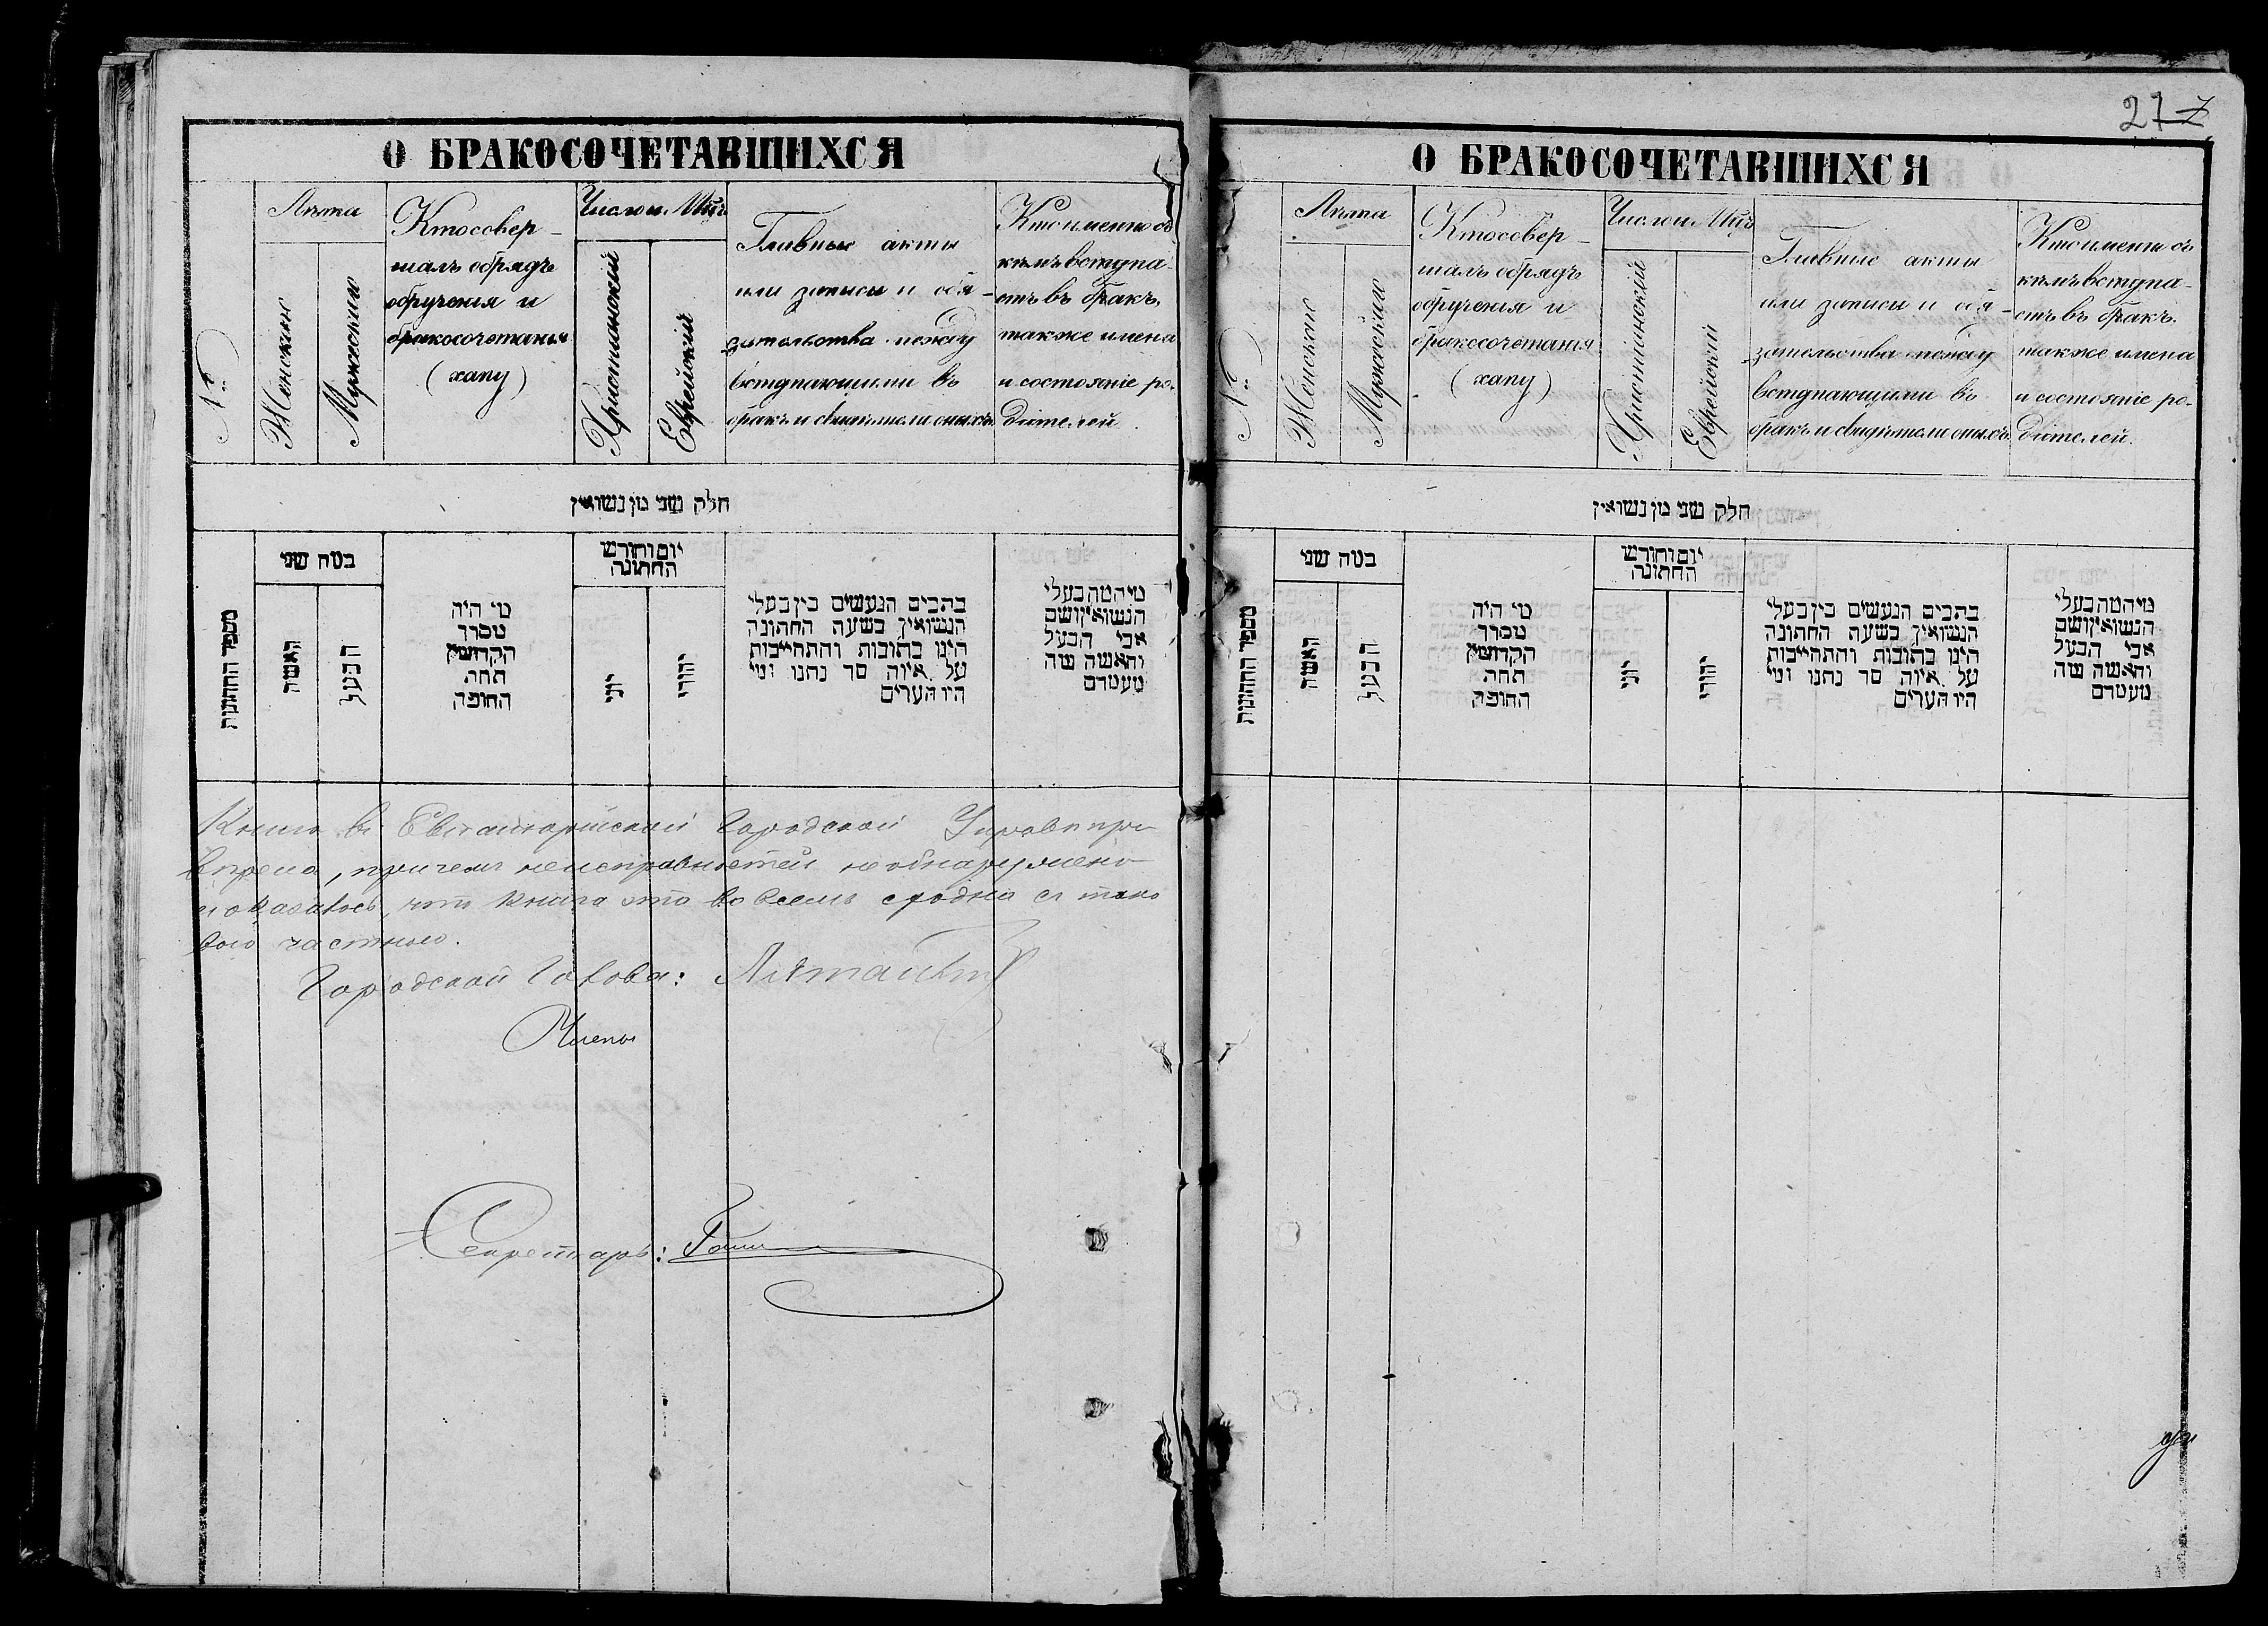 О БРАКОСОЧЕТАВШИХСЯ
№
Лѣта
Женскіе
Мужескіе
Кто совер-
шалъ обрядъ
обрученія и
бракосочетанія
(хапу)
Число и Мцъ
Христіанскій
Еврейскій
Главные акты
или записи и обя-
зательства между
вступающими въ
бракъ и свидѣтели оныхъ
Кто именно съ
кѣмъ вступа-
етъ въ бракъ,
также имена
и состояніе ро-
дителей.
חלק שני מן נשואין
מספר החתונות
כמה שני
האשה
הבעל
מי היה
מסדר
הקדושין
תחת
החופה
יום וחודש
החתונה
יוני
יהודי
כתבים הנעשים בין בעלי
הנשואין בשעת החתונה
היינו כתובות והתחייבות
על איזה סך נתנו ומי
היו העדים
מי המה בעלי
הנשואין ושם
אבי הבעל
והאשה ומה
מעמדם
Книга въ Евпаторійской Городской Управѣ про
вѣрена, причемъ неисправностей не обнаружено
и оказалось, что книга эта во всемъ сходна съ тако
вою частною.
Городской Голова:
Члены
Секретарь:
27
О БРАКОСОЧЕТАВШИХСЯ
№
Лѣта
Женскіе
Мужескіе
Кто совер-
шалъ обрядъ
обрученія и
бракосочетанія
(хапу)
Число и Мцъ
Христіанскій
Еврейскій
Главные акты
или записи и обя-
зательства между
вступающими въ
бракъ и свидѣтели оныхъ
Кто именно съ
кѣмъ вступа-
етъ въ бракъ.
также имена
и состояніе ро-
дителей.
חלק שני מן נשואין
מספר החתונות
כמה שני
האשה
הבעל
מי היה
מסדר
הקדושין
תחת
החופה
יום וחודש
החתונה
יוני
יהודי
כתבים הנעשים בין בעלי
הנשואין בשעת החתונה
היינו כתובות והתחייבות
על איזה סך נתנו ומי
היו העדים
מי המה בעלי
הנשואין ושם
אבי הבעל
והאשה ומה
מעמדם